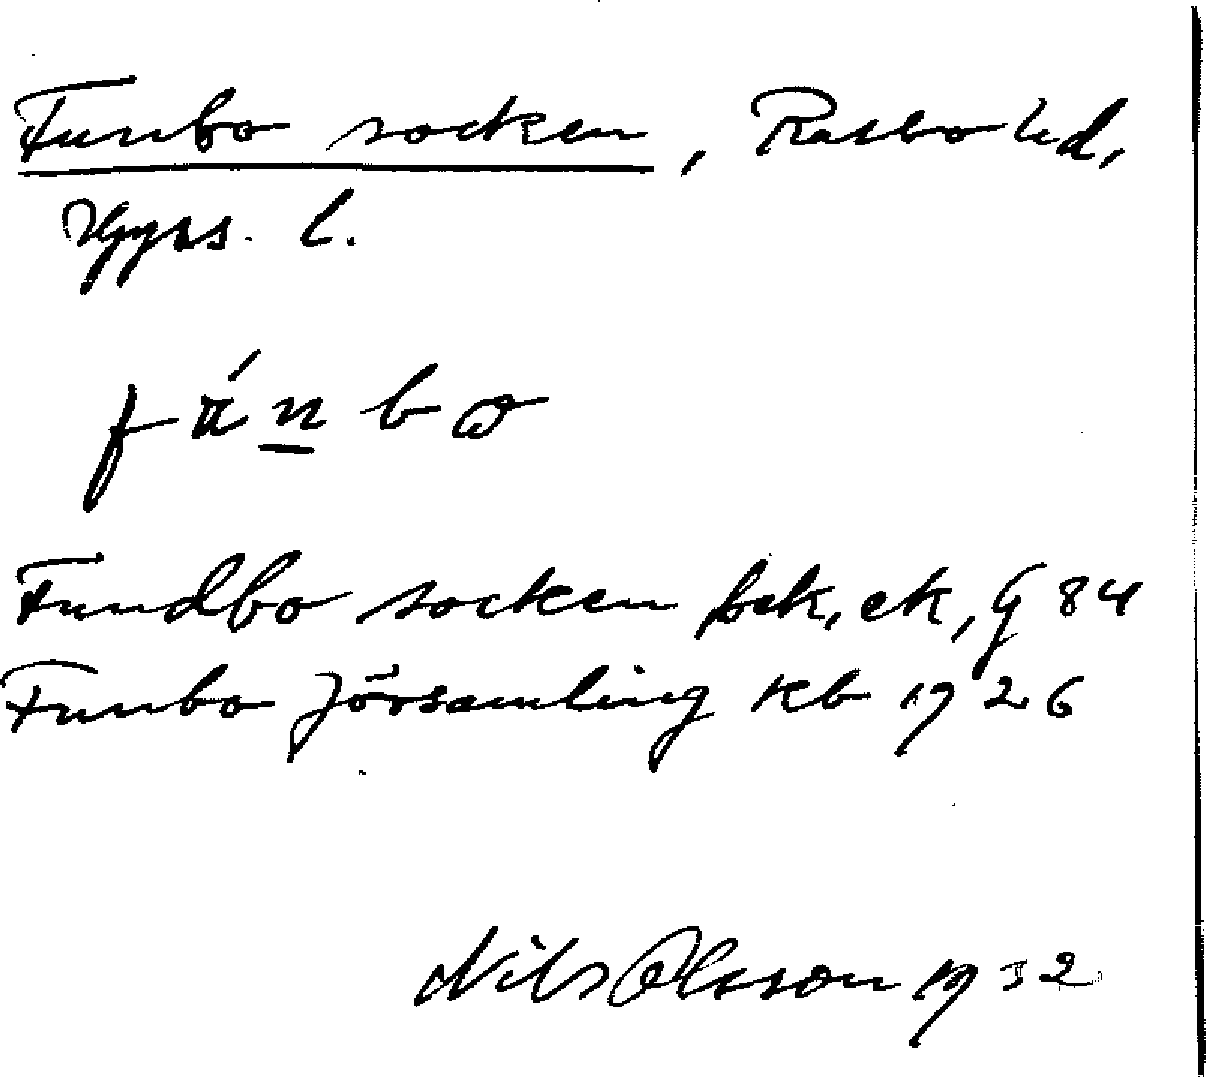 Funbo socken, Rasbo hd,
Upps. l.
fú̈n̲bω
Fundbo socken jbek, ek, G 84
Funbo församling kb 1926
Nils Olsson 1932